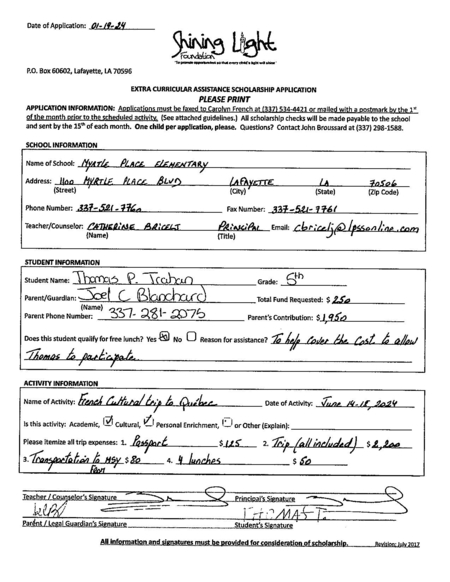 Date of Application: 01-19-24
Shining Light
Foundation
"To promote opportunities so that every child's light will shine"
P.O. Box 60602, Lafayette, LA 70596
EXTRA CURRICULAR ASSISTANCE SCHOLARSHIP APPLICATION
PLEASE PRINT
APPLICATION INFORMATION: Applications must be faxed to Carolyn French at (337) 534-4421 or mailed with a postmark by the 1st
of the month prior to the scheduled activity. (See attached guidelines.) All scholarship checks will be made payable to the school
and sent by the 15th of each month. One child per application, please. Questions? Contact John Broussard at (337) 298-1588.
SCHOOL INFORMATION
Name of School: MYRTLE PLACE ELEMENTARY
Address: 1100 MYRTLE PLACE BLVD LAFAYETTE LA 70506
(Street) (City) (State) (Zip Code)
Phone Number: 337-521-7760 Fax Number: 337-521-7761
Teacher/Counselor: CATHERINE BRICELJ PRINCIPAL Email: cbricelj@lpssonline.com
(Name) (Title)
STUDENT INFORMATION
Student Name: Thomas P. Trahan Grade: 5th
Parent/Guardian: Joel C Blanchard Total Fund Requested: $ 250
(Name)
Parent Phone Number: 337-281-2075 Parent's Contribution: $ 1,950
Does this student qualify for free lunch? Yes No Reason for assistance? To help cover the cost to allow
Thomas to participate.
ACTIVITY INFORMATION
Name of Activity: French Cultural trip to Quebec Date of Activity: June 14-18, 2024
Is this activity: Academic, Cultural, Personal Enrichment, or Other (Explain):
Please itemize all trip expenses: 1. Passport $ 125 2. Trip (all included) $ 2,200
3. Transportation to MSY $ 80 4. 4 lunches $ 50
Teacher / Counselor's Signature Principal's Signature
THOMAS T.
Parent / Legal Guardian's Signature Student's Signature
All information and signatures must be provided for consideration of scholarship. Revision: July 2017